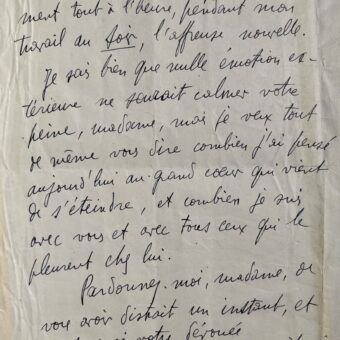 ment tout à l'heure, pendant mon
travail au soir, l'affreuse nouvelle.
Je sais bien que nulle émotion ex-
térieure ne saurait calmer votre
peine, madame, mais je veux tout
de même vous dire combien j'ai pensé
aujourd'hui au grand cœur qui vient
de s'éteindre, et combien je suis
avec vous et avec tous ceux qui le
pleurent chez lui.
Pardonnez-moi, madame, de
vous avoir distrait un instant, et
votre dévouée